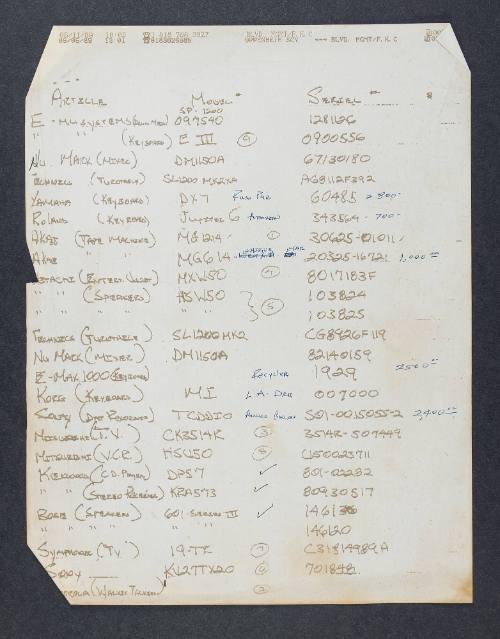 05/11/89 18:03 1 818 706 9927 BLVD. MGMT/F.K.C
05/05/89 18:01 OPPENHEIM SEV →→→ BLVD. MGMT/F.K.C
ARTICLE MODEL# SERIEL # #
E-MU SYSTEMS SP-1200 097540 128126
" " (KEYBOARD) E III 9 0900556
NU MARK (MIXER) DM1150A 67130180
TECHNICS (TURNTABLE) SL1200 MK2XA AG8112F392
YAMAHA (KEYBOARD) DX7 60485 800-
ROLAND (KEYBOARD) JUPITER 6 343564 - 700-
AKAI (TAPE MACHINE) MG1214 1 30625-01011
AKAI " " MG614 20325-16721 1,000
MXW50 7 8017183F
" " (SPEAKERS) HSW50 5 103824
" " " " 103825
TECHNICS (TURNTABLE) SL1200MK2 CG8926F119
NU MARK (MIXER) DM1150A 82140159
E-MAX 1000 (KEYBOARD) RECYCLER 1929 2500
KORG (KEYBOARD) M1 L.A. DRE 007000
SONY (DAT RECORDER) TCDD10 SO1-0015055-2 2,400
MITSUBISHI (T.V.) CK3514R 3 3514R-507449
MITSUBISHI (V.C.R.) HSU50 8 U50023711
KENWOOD (C.D. PLAYER) DP57 ✓ 801-02282
" " (STEREO RECEIVER) KRA573 ✓ 80930517
BOSE (SPEAKERS) 601-SERIES III ✓ 146136
" " " " " " 146120
SYMPHONIC (TV) 19-TR 7 C31814989A
SONY KV27TX20 6 701848
(WALKIE TALKIES) 2